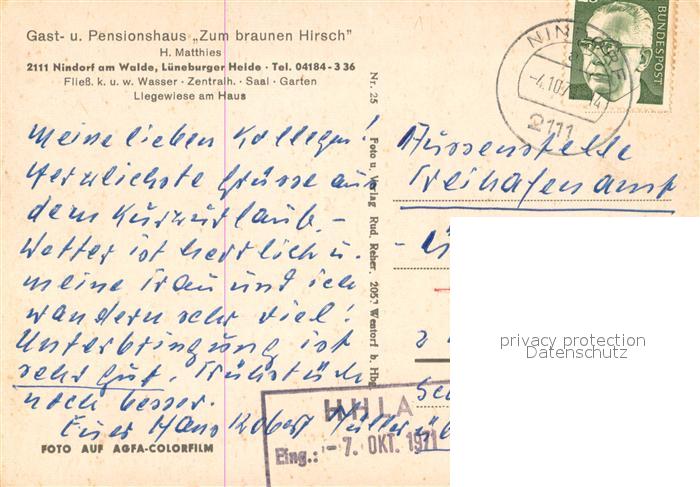 Gast- u. Pensionshaus „Zum braunen Hirsch"
H. Matthies
2111 Nindorf am Walde, Lüneburger Heide · Tel. 04184-3 36
Fließ. k. u. w. Wasser · Zentralh. · Saal · Garten
Liegewiese am Haus
Meine lieben Kollegen!
Herzlichste Grüsse aus
dem Kurzurlaub. -
Wetter ist herrlich u.
meine Frau und ich
wandern sehr viel!
Unterbringung ist
sehr gut, Frühstück
noch besser.
Euer Hans Robert Müller
FOTO AUF AGFA-COLORFILM
Nr. 25 Foto u. Verlag Rud. Reher, 2057 Wentorf b. Hbg.
BUNDESPOST
2111
Aussenstelle
Freihafenamt
HHLA
Eing.: - 7. OKT. 1971
privacy protection
Datenschutz